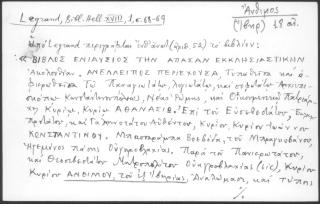 Legrand, Bibl. Hell. XVIII, 1, σ. 68-69
Ἄνθιμος
(Ἴβηρ) 18 αἰ.
Ὑπὸ Legrand περιγράφεται ἐνθάδε (ἀριθ. 52) τὸ βιβλίον:
« ΒΙΒΛΟΣ ΕΝΙΑΥΣΙΟΣ ΤΗΝ ΑΠΑΣΑΝ ΕΚΚΛΗΣΙΑΣΤΙΚΗΝ
Ἀκολουθίαν. ΑΝΕΛΛΕΙΠΩΣ ΠΕΡΙΕΧΟΥΣΑ, Τυπωθεῖσα καὶ ἀ-
φιερωθεῖσα Τῷ Παναγιωτάτῳ, Λογιωτάτῳ, καὶ σοφωτάτῳ Ἀρχιεπι-
σκόπῳ Κωνσταντινουπόλεως, Νέας Ῥώμης, καὶ Οἰκουμενικῷ Πατριάρ-
χῃ Κυρίῳ, Κυρίῳ ΑΘΑΝΑΣΙῼ. Ἐπὶ τοῦ Εὐσεβεστάτου,
καὶ Γαληνοτάτου Αὐθέντου, Κυρίου, Κυρίου Ἰωάννου
ΚΩΝΣΤΑΝΤΙΝΟΥ. Μπασαράμπα Βοεβόνδα, τοῦ Μπραγκοβάνου,
Ἡγεμόνος πάσης Οὐγκροβλαχίας. Παρὰ τοῦ Πανιερωτάτου,
καὶ Θεοσεβεστάτου Μητροπολίτου Οὐγκροβλαχίας (sic), Κυρίου
Κυρίου ΑΝΘΙΜΟΥ, τοῦ ἐξ Ἰβηρίας, Ἀναλώμασι καὶ τύποις